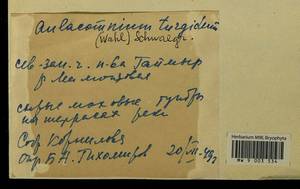 Aulacomnium turgidum
(Wahl) Schwaegr.
сев-зап. ч. п-ва Таймыр
р
сырые моховые тундры
на террасах реки
Собр Корнилова
опр Б.Н. Тихомиров 20/VII-49г
Herbarium MW, Bryophyta
MW 9 003 334